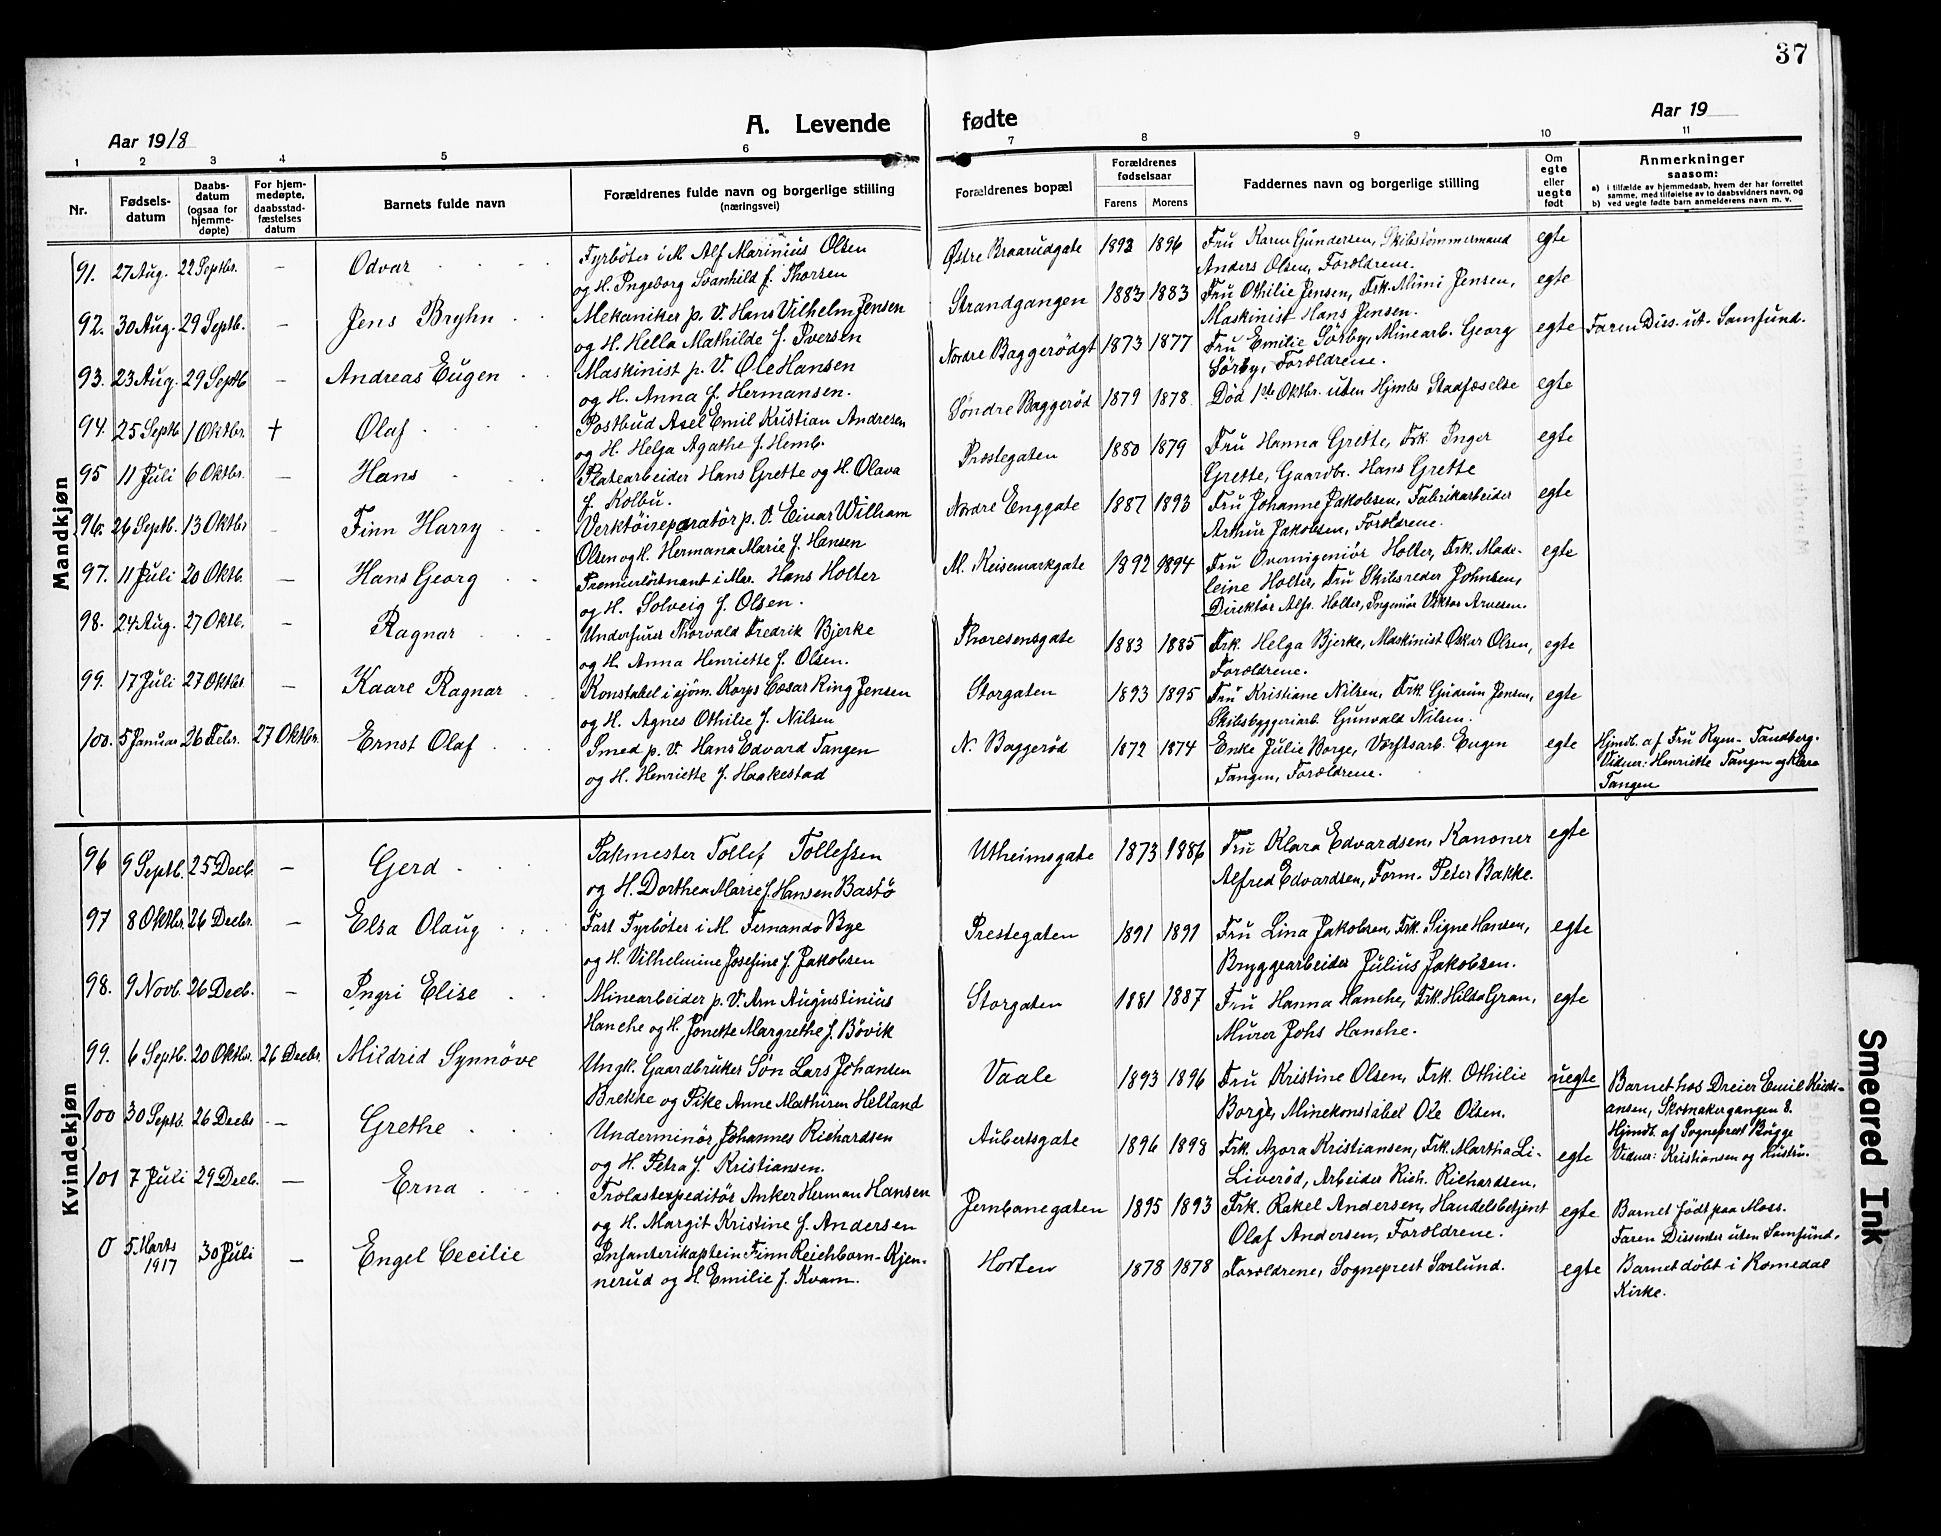 37
Aar 1918
A. Levende fødte
Aar 19
1 2 3 4 5 6 7 8 9 10 11
Nr.
Fødsels-
datum
Daabs-
datum
(ogsaa for
hjemme-
døpte)
For hjem-
medøpte,
daabsstad-
fæstelses
datum
Barnets fulde navn
Forældrenes fulde navn og borgerlige stilling
(næringsvei)
Forældrenes bopæl
Forældrenes
fødselsaar
Farens Morens
Faddernes navn og borgerlige stilling
Om
egte
eller
uegte
født
Anmerkninger
saasom:
a) i tilfælde av hjemmedaab, hvem der har forrettet
samme, med tilføielse av to daabsvidners navn, og
b) ved uegte fødte barn anmelderens navn m. v.
Mandkjøn
91. 27 Aug. 22 Septbr. — Odvar
Fyrböter i M. Alf Marinius Olsen
og H. Ingeborg Svanhild f. Thorsen
Østre Braarudgate 1893 1896
Fru Karen Gundersen, Skibstømmermand
Anders Olsen, Forældrene.
egte
92. 30 Aug. 29 Septb. — Jens Bryhn
Mekaniker p. V. Hans Vilhelm Jensen
og H. Hella Mathilde f. Iversen
Strandgangen 1883 1883
Fru Othilie Jensen, Frk. Mimi Jensen,
Maskinist Hans Jensen.
egte
93. 23 Aug. 29 Septb — Andreas Eugen
Maskinist p. V. Ole Hansen
og H. Anna f. Hermansen.
Nordre Baggerödgt 1873 1877
Fru Emilie Sörby, Minearb. Georg
Sörby, Forældrene.
egte Faren Diss. ut. Samfund.
94. 25 Septb. 1 Oktbr. + Olaf
Postbud Axel Emil Kristian Andresen
og H. Helga Agathe f. Hemb.
Söndre Baggeröd 1879 1878
Död 1ste Oktbr. uten Hjmbs Stadfæselse
egte
95 11 Juli 6 Oktbr. — Hans
Platearbeider Hans Grette og H. Olava
f. Kolbu.
Prestegaten 1880 1879
Fru Hanna Grette, Frk. Inger
Grette, Gaardbr. Hans Grette
egte
96. 26 Septb. 13 Oktbr — Finn Harry
Verktöireparatör p. V. Einar William
Olsen og H. Hermana Marie f. Hansen
Nordre Enggate 1887 1893
Fru Johanne Jakobsen, Fabrikarbeider
Arthur Jakobsen, Forældrene.
egte
97. 11 Juli 20 Oktb. — Hans Georg
Premierlöitnant i Mar. Hans Holter
og H. Solveig f. Olsen.
M. Reisemarkgate 1892 1894
Fru Overingeniör Holter, Frk. Made-
leine Holter, Fru Skibsreder Johnsen,
Direktör Alfr. Holter, Ingeniör Viktor Arnesen.
egte
98. 24 Aug. 27 Okte. — Ragnar
Underfurer Thorvald Fredrik Bjerke
og H. Anna Henriette f. Olsen.
Thoresensgate 1883 1885
Frk. Helga Bjerke, Maskinist Oskar Olsen,
Forældrene.
egte
99. 17 Juli 27 Oktbr. — Kaare Ragnar
Konstabel i sjöm. Korps Cæsar Ring Jensen
og H. Agnes Othilie f. Nilsen
Storgaten 1893 1895
Fru Kristiane Nilsen, Frk Gudrun Jensen,
Skibsbyggeriarb. Gunvald Nilsen.
egte
100. 5 Januar 26 Febr. 27 Oktbr. Ernst Olaf
Smed p. V. Hans Edvard Tangen
og H. Henriette f. Haakestad
N. Baggeröd 1872 1874
Enke Julie Borge, Værftsarb. Eugen
Tangen, Forældrene.
egte
Hjmdb. af Fru Ryen-Tandberg.
Vidner: Henriette Tangen og Klara
Tangen
Kvindekjøn
96 9 Septb. 25 Decb. — Gerd
Pakmester Tollef Tollefsen
og H. Dorthea Marie f. Hansen Bastö
Utheimsgate 1873 1886
Fru Klara Edvardsen, Kanoner
Alfred Edvardsen, Form. Peter Bakke.
egte
97 8 Oktbr. 26 Decbr. — Elsa Olaug
Fast Fyrböter i M. Fernando Bye
og H. Vilhelmine Josefine f. Jakobsen
Prestegaten 1891 1891
Fru Lina Jakobsen, Frk. Signe Hansen,
Bryggearbeider Julius Jakobsen.
egte
98. 9 Novb. 26 Decb. — Ingri Elise
Minearbeider p. V. Arn Augustinius
Hanche og H. Jonette Margrethe f. Bövik
Storgaten 1881 1887
Fru Hanna Hanche, Frk. Hilda Gran,
Murer Johs Hanche.
egte
99. 6 Septb. 20 Oktbr. 26 Decbr. Mildrid Synnöve
Ungk. Gaardbruker Sön Lars Johansen
Brekke og Pike Anne Mathisen Helland
Vaale 1893 1896
Fru Kristine Olsen, Frk. Othilie
Borge, Minekonstabel Ole Olsen.
uegte
Barnet hos Dreier Emil Kristi-
ansen, Skomakergangen 8.
Hjmdb. af Sogneprest Bugge
Vidner: Kristiansen og Hustru.
100 30 Septb. 26 Decbr — Grethe
Underminör Johannes Richardsen
og H. Petra f. Kristiansen.
Aubertsgate 1896 1898
Frk. Azora Kristiansen, Frk. Martha Li-
Liveröd, Arbeider Rich. Richardsen.
egte
101 7 Juli 29 Decb. — Erna
Trolastexpeditör Anker Herman Hansen
og H. Margit Kristine f. Andersen
Jernbanegaten 1895 1893
Frk. Rakel Andersen, Handelsbetjent
Olaf Andersen, Forældrene.
egte
Barnet födt paa Moss.
Faren Dissenter uten Samfund.
0 5 Marts 1917 30 Juli — Engel Cecilie
Infanterikaptein Finn Reichborn-Kjen-
nerud og H. Emilie f. Kvam.
Horten 1878 1878
Forældrene, Sogneprest Saxlund.
egte
Barnet döbt i Romedal
Kirke.
Smeared Ink